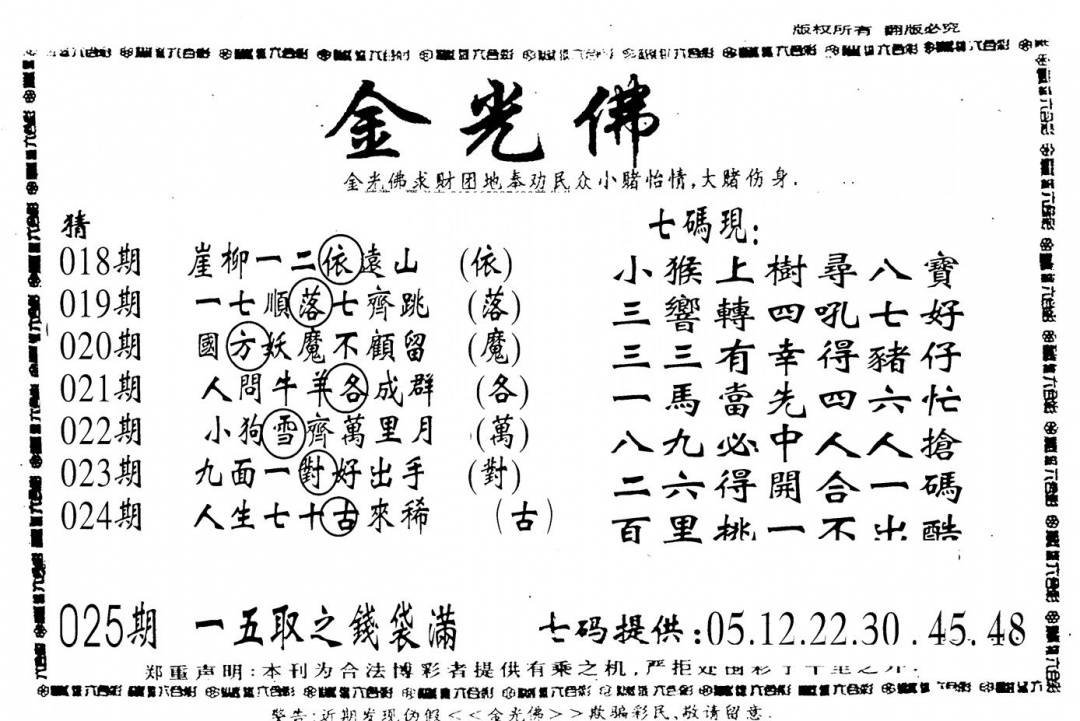 版权所有 翻版必究
金光佛
金光佛求财团地奉劝民众小赌怡情,大赌伤身.
猜
018期 崖柳一二依遠山 (依)
019期 一七順落七齊跳 (落)
020期 國方妖魔不顧留 (魔)
021期 人問牛羊各成群 (各)
022期 小狗雪齊萬里月 (萬)
023期 九面一對好出手 (對)
024期 人生七十古來稀 (古)
七碼現:
小猴上樹尋八寶
三響轉四吼七好
三三有幸得豬仔
一馬當先四六忙
八九必中人人搶
二六得開合一碼
百里挑一不出酷
025期 一五取之錢袋滿 七码提供:05.12.22.30.45.48
郑重声明:本刊为合法博彩者提供有乘之机,严拒
警告:近期发现伪假<<金光佛>>欺骗彩民,敬请留意.